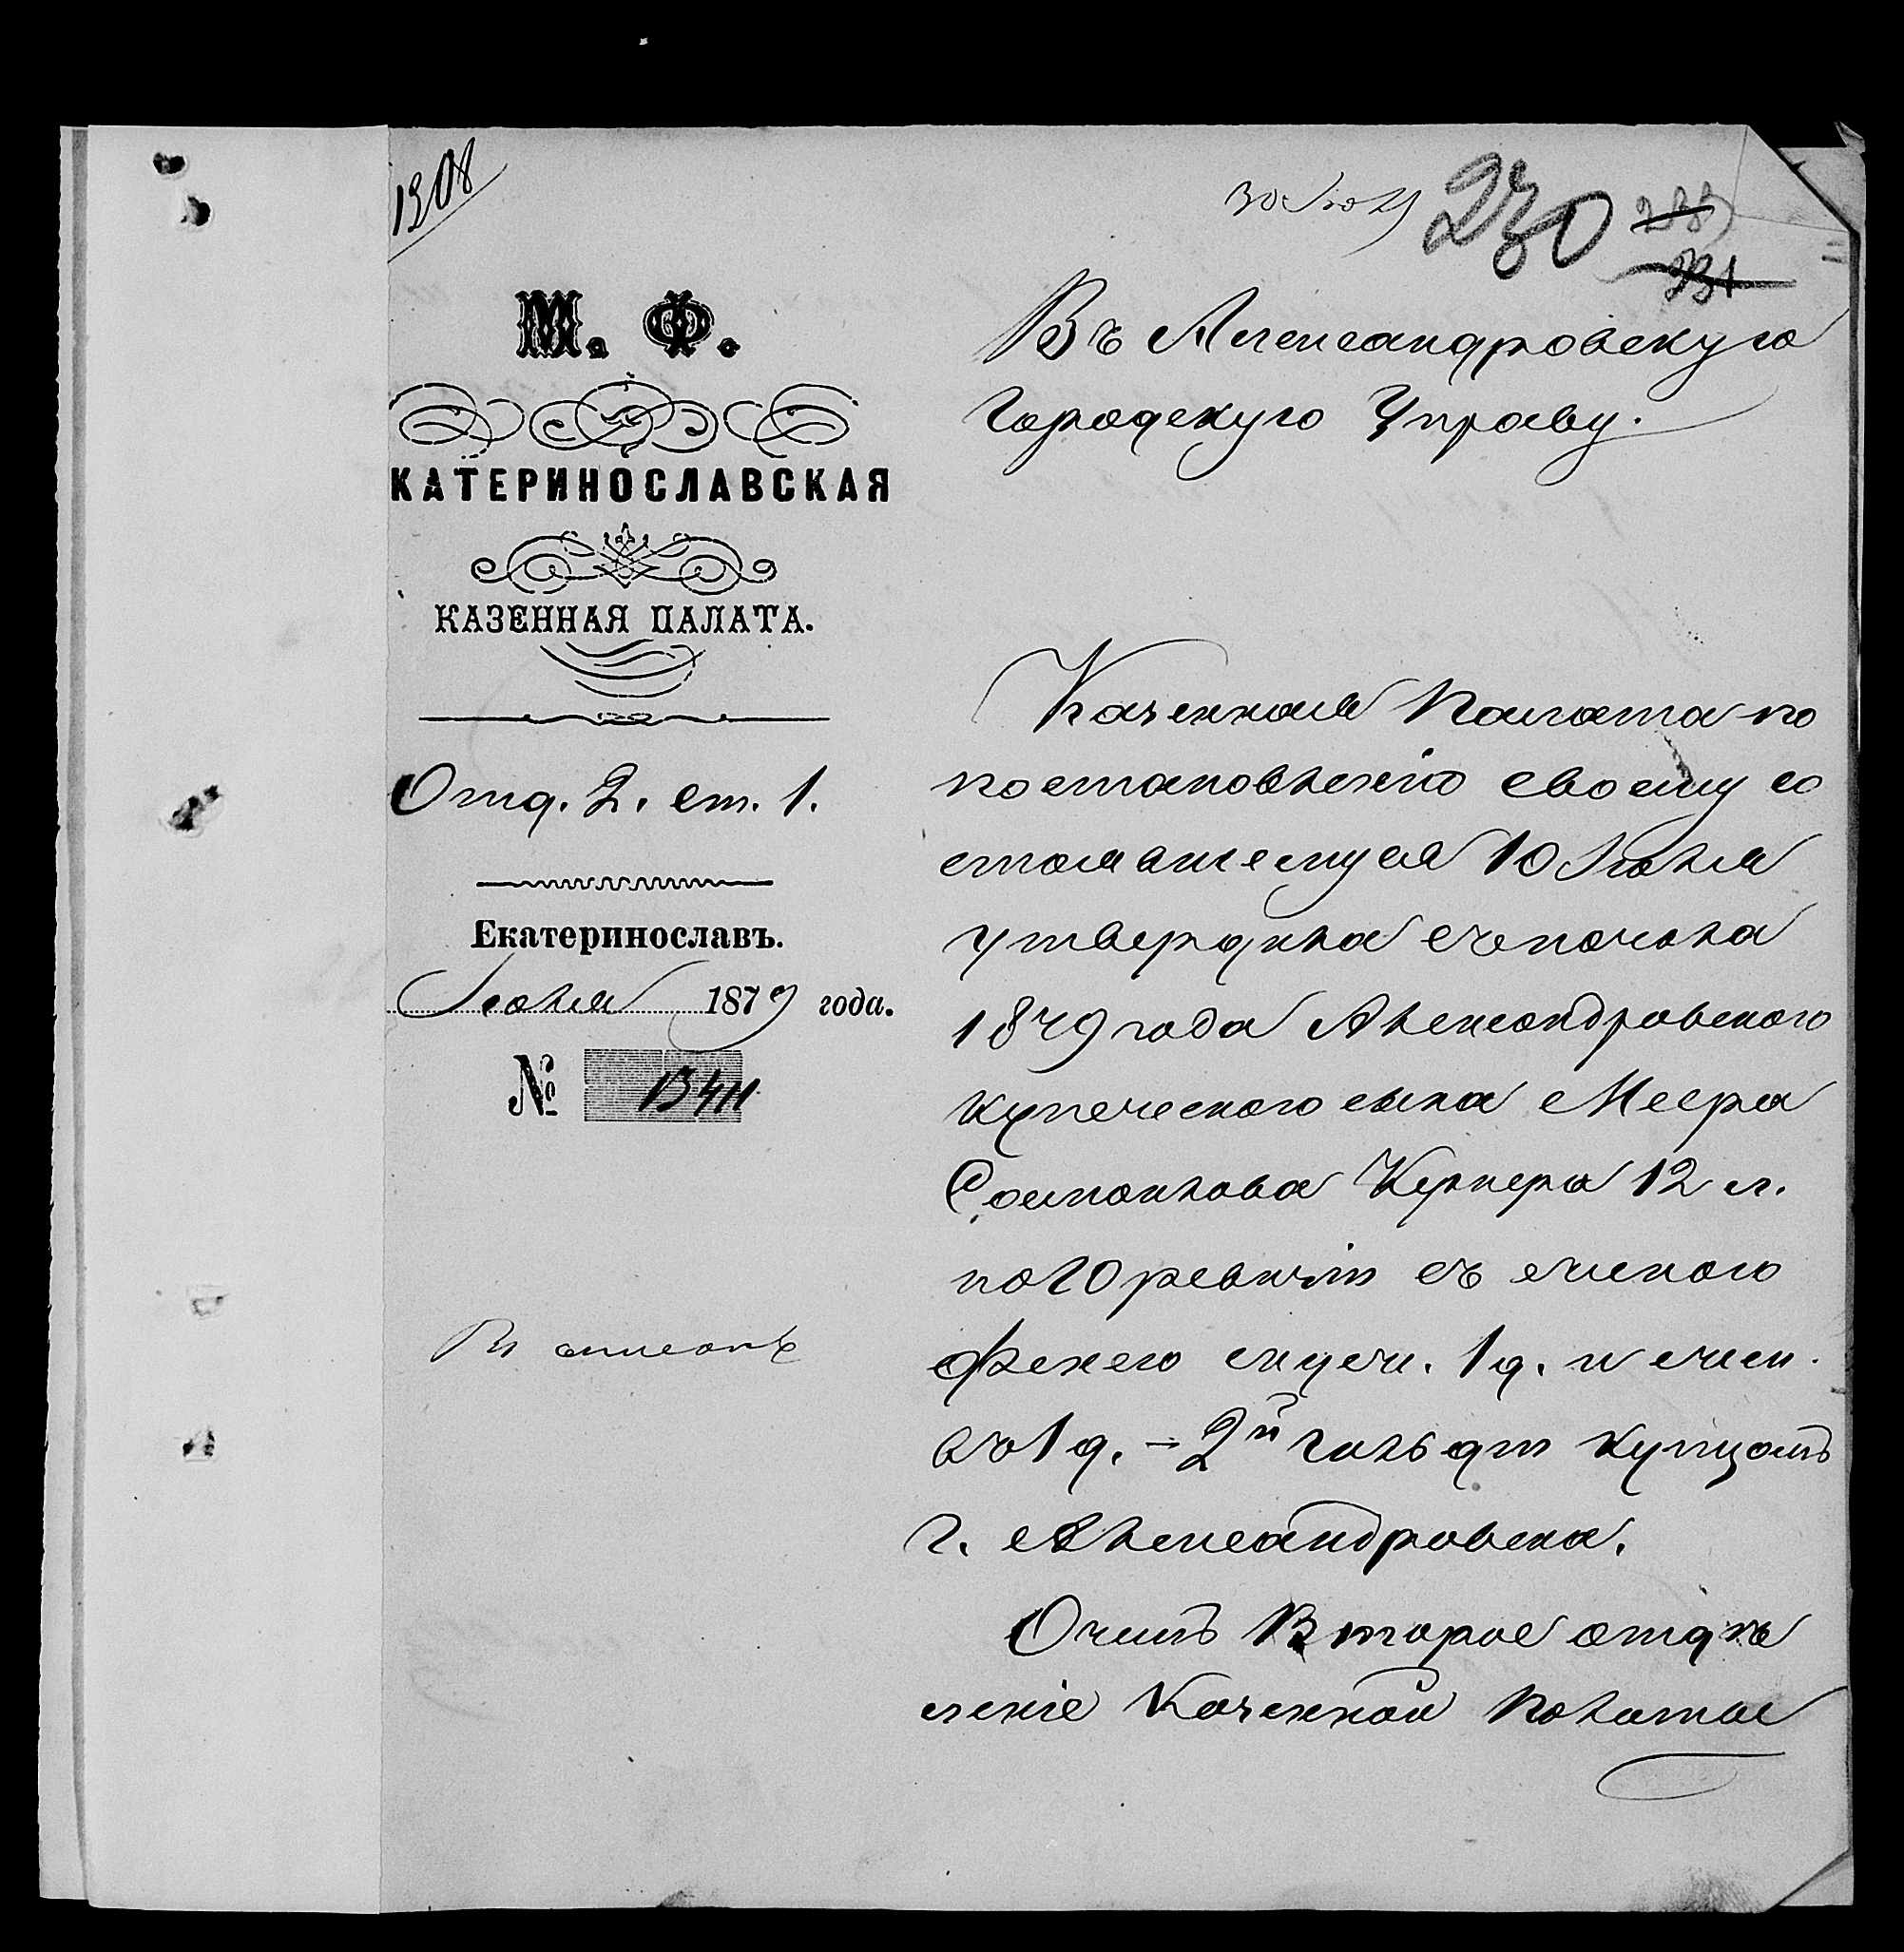 1308
30 Июня
230
231
М. Ф.
КАТЕРИНОСЛАВСКАЯ
КАЗЕННАЯ ПАЛАТА.
Отд. 2. ст. 1.
Екатеринославъ.
Іюля 1879 года.
№ 13411
Въ списокъ
Въ Александровскую
Городскую Управу.
Казенная Палата по
постановленію своему со
стоявшемуся 10 Іюля
утвердила съ
1879 года Александровского
купеческого сына Меера
Соломонова 12 л.
по 10 ревизіи съ
1 д. и
въ 1 д. – 2й гильдіи купцомъ
г. Александровска.
О чемъ Второе отдѣ
леніе Казенной Палаты